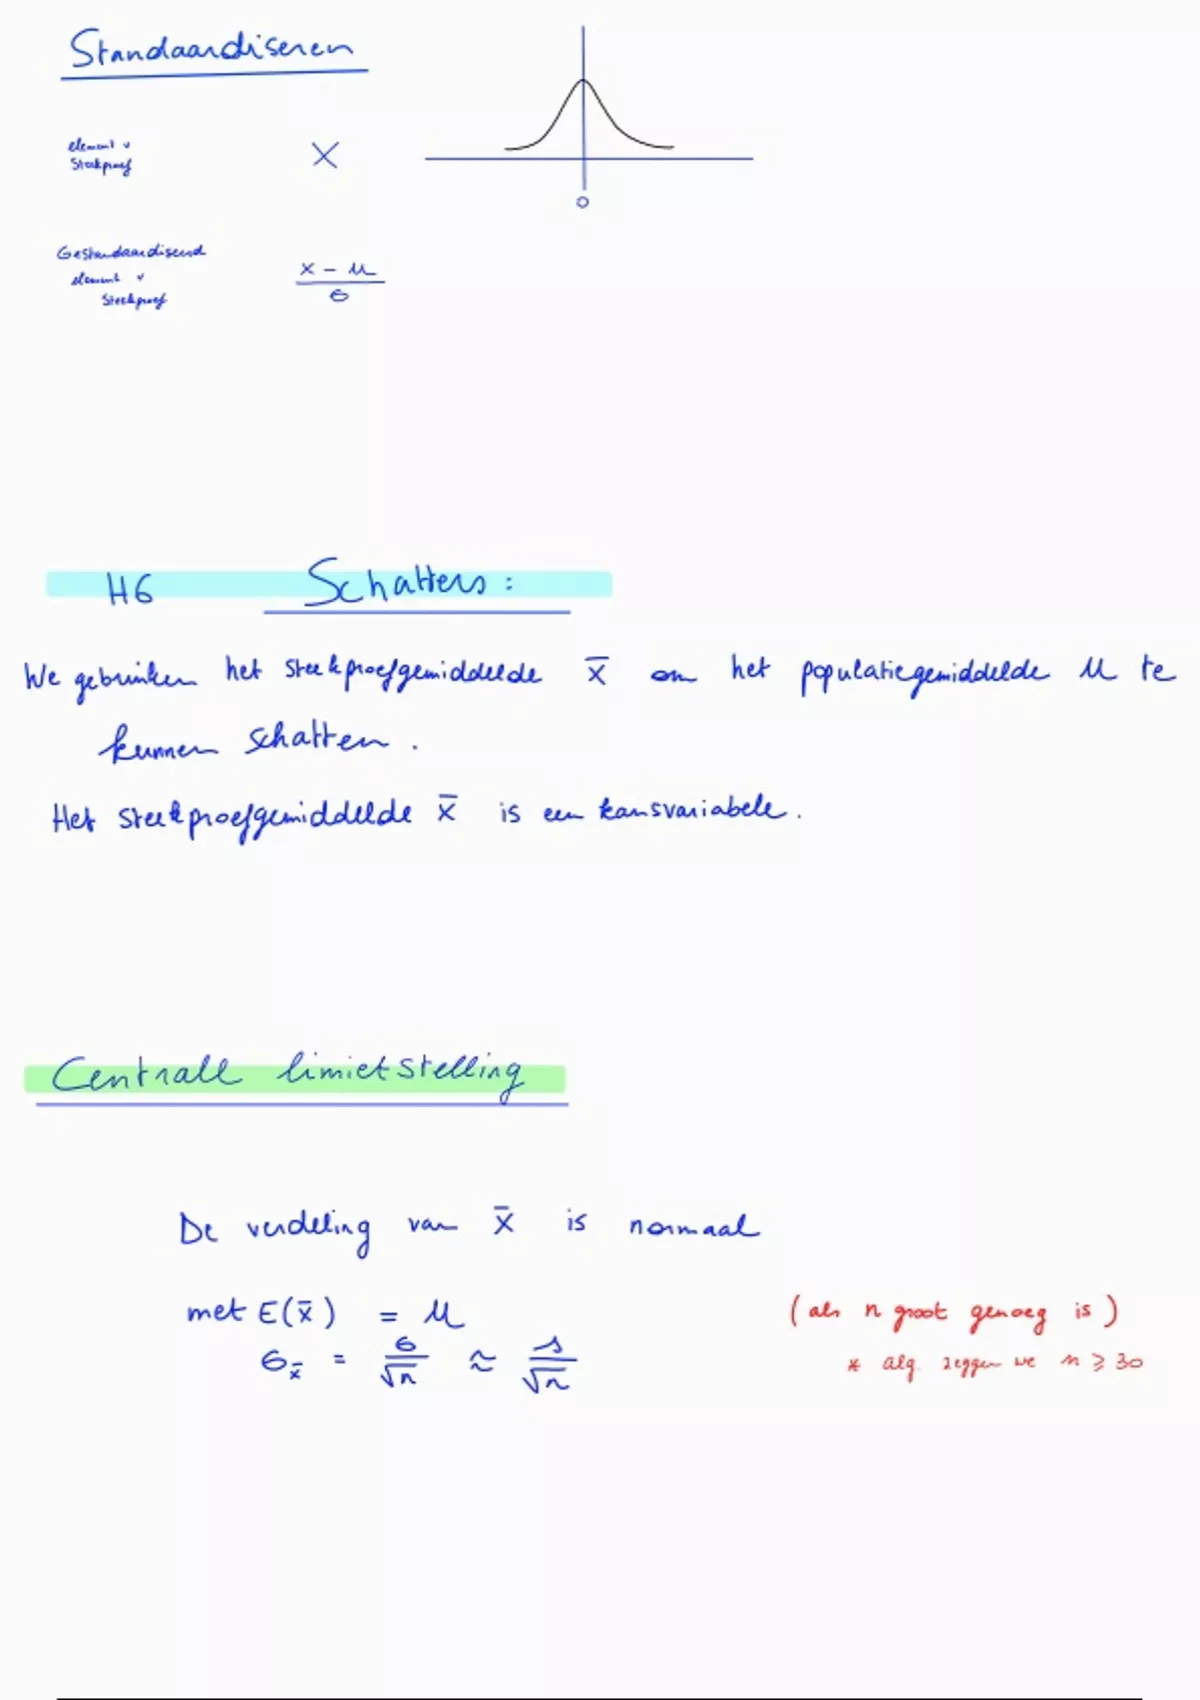 Standaardiseren
element v
Steekproef
X
0
Gestandaardiseerd
element v
Steekproef
x - μ
σ
H6 Schatters:
We gebruiken het steekproefgemiddelde x̄ om het populatiegemiddelde μ te
kunnen schatten.
Het steekproefgemiddelde x̄ is een kansvariabele.
Centrale limietstelling
De verdeling van x̄ is normaal
met E(x̄) = μ (als n groot genoeg is)
σx̄ = σ/√n ≈ s/√n * alg. zeggen we n ≥ 30